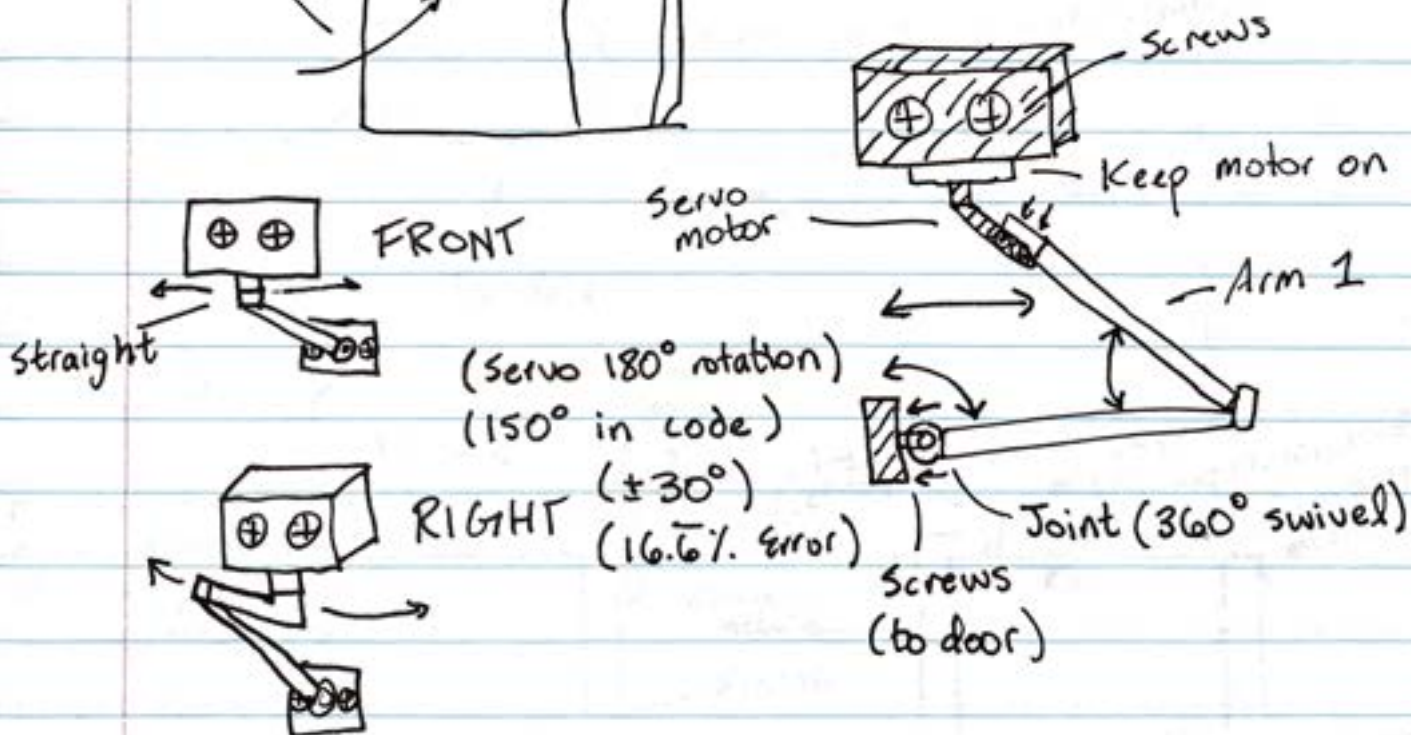 Screws
Keep motor on
Servo
motor
FRONT
Arm 1
straight
(Servo 180° rotation)
(150° in code)
(±30°)
(16.6̅% Error)
RIGHT
Joint (360° swivel)
Screws
(to door)